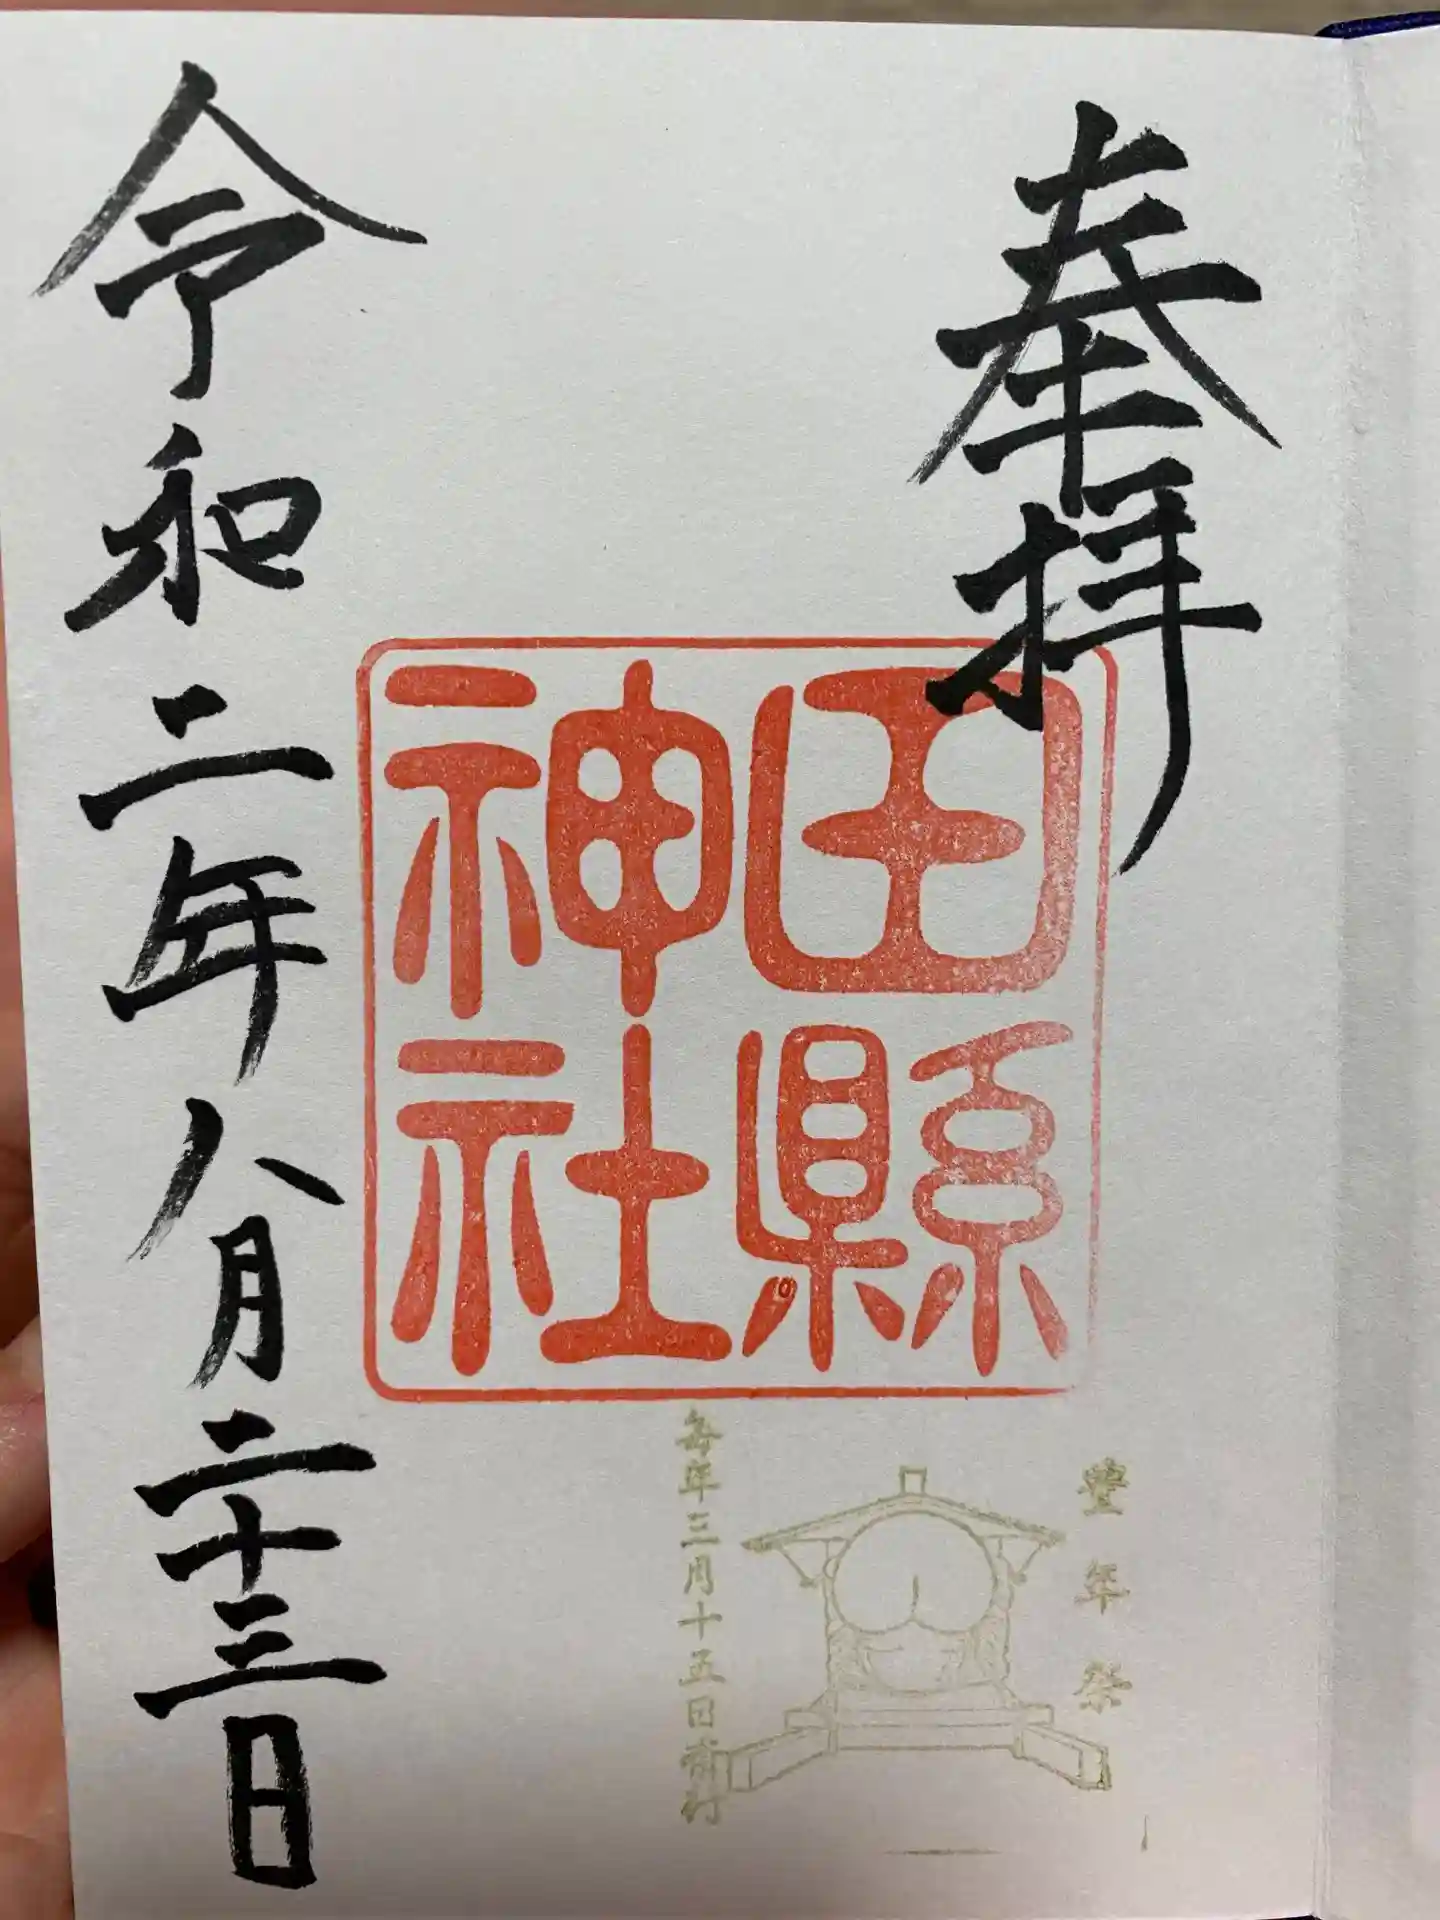 奉拝
田縣
神社
豊年祭
毎年三月十五日斎行
令和二年八月二十三日